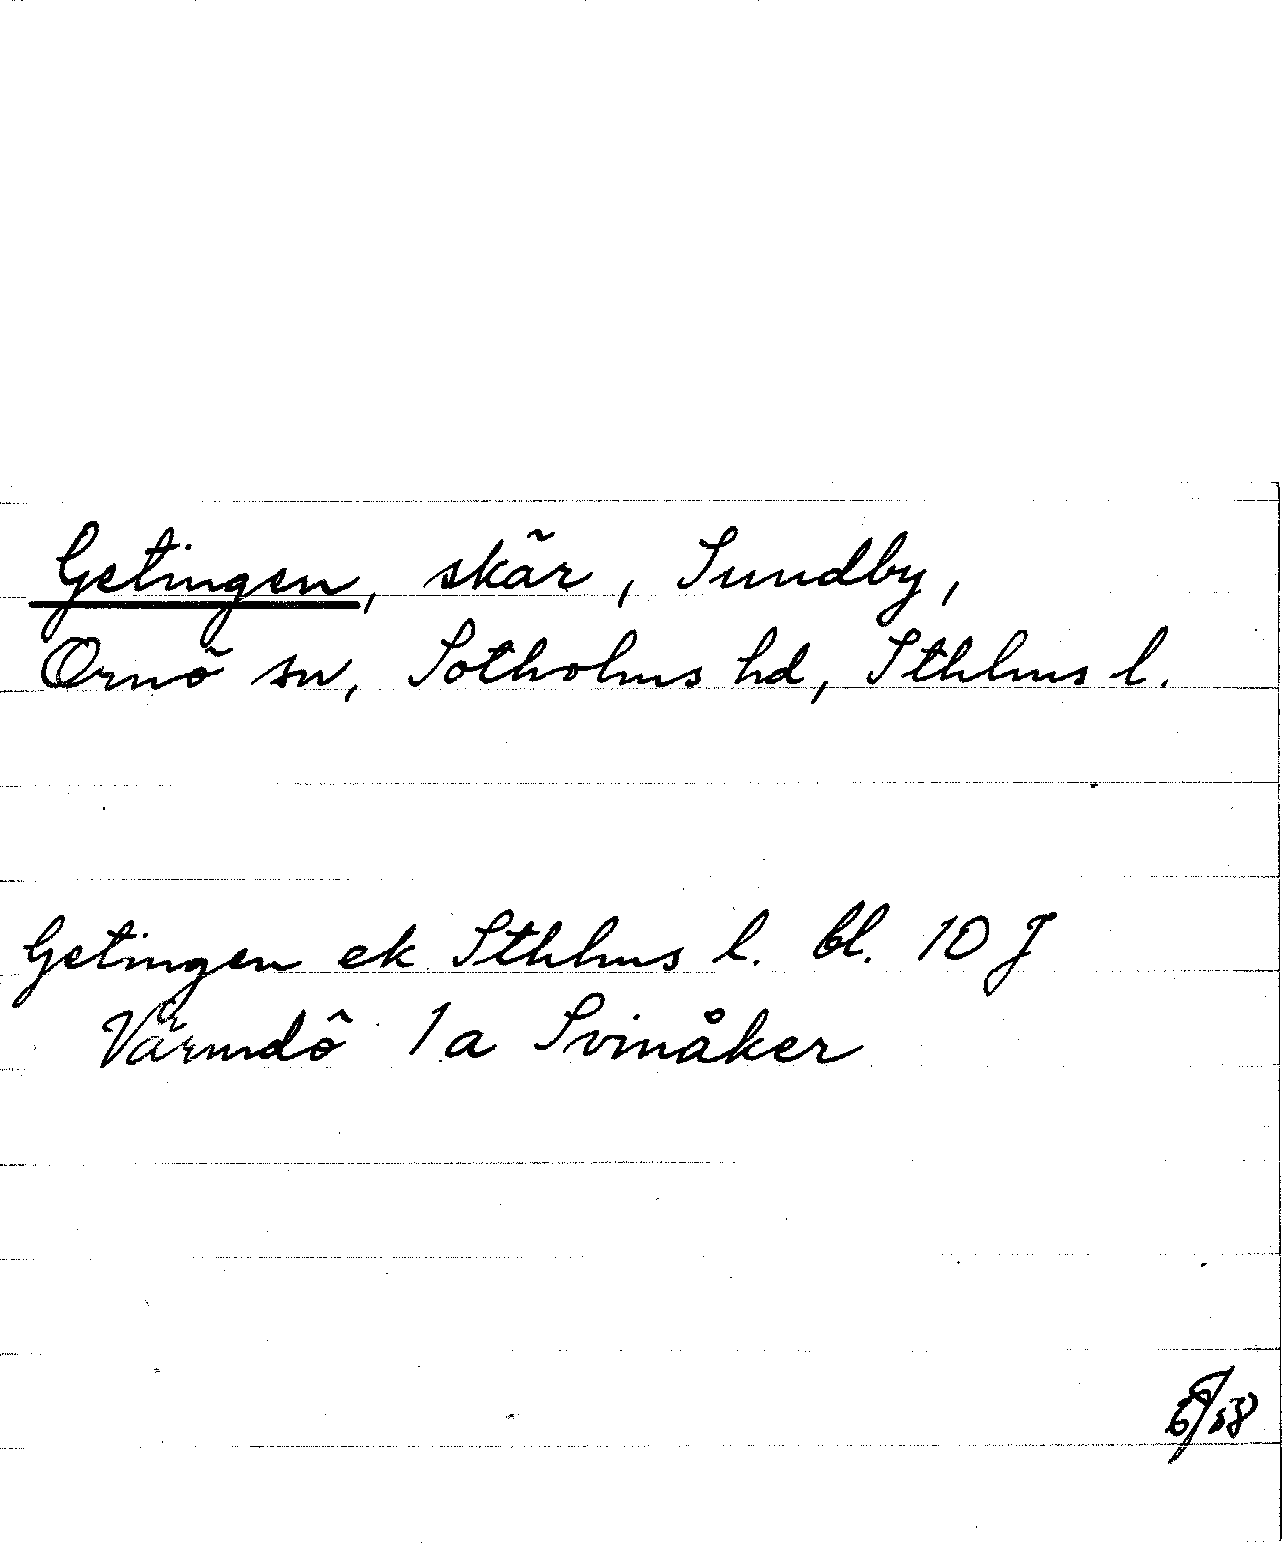 Getingen, skär, Sundby,
Ornö sn, Sotholms hd, Sthlms l.
Getingen ek Sthlms l. bl. 10 J
Värmdö 1a Svinåker